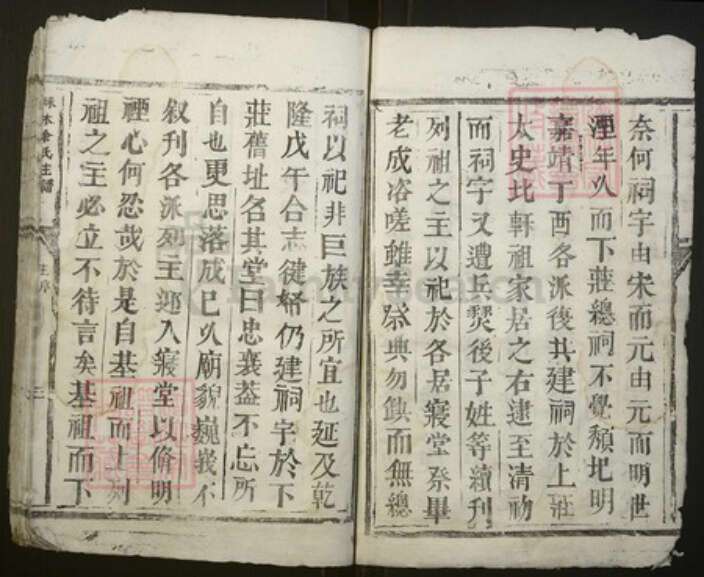 奈何祠宇由宋而元由元而明世
湮年久而下莊總祠不覺頹圯明
嘉靖丁酉各派後共建祠於上莊
太史北軒祖家居之右逮至清初
而祠宇又遭兵燹後子姓等續刋
列祖之主以祀於各居寢堂祭畢
老成咨嗟雖幸祭典勿鈌而無總
祠以祀非巨族之所宜也延及乾
隆戊午合志徤帑仍建祠宇於下
莊舊址名其堂曰忠襄葢不忘所
自也更思落成已久廟貌巍峩不
叙刋各派列主迎入寢堂以脩明
禋心何忍哉於是自基祖而上列
祖之主必立不待言矣基祖而下
氏主譜
主序